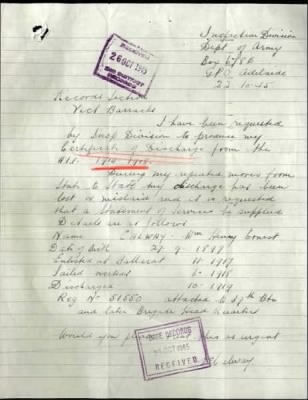 Inspection Division
Dept of Army
Box 678E
G.P.O. Adelaide
23-10-45
RECEIVED
26 OCT 1945
Records Section
Vict Barracks
I have been requested
by Insp Division to produce my
Certificate of Discharge from the
A.I.F. 1914-1918.
During my repeated moves from
State to State my discharge has been
lost or mislaid and it is requested
that a Statement of Service be supplied
Details are as follows
Name CHEWAY - Wm Henry Ernest
Date of Birth 27-9-1899
Enlisted at Ballarat 11-1917
Sailed overseas 6-1918
Discharged 10-1919
Reg No 51550 attached 8th Btn
and later Brigade Head Quarters
Would you please treat this as urgent
BASE RECORDS
OCT 1945
RECEIVED